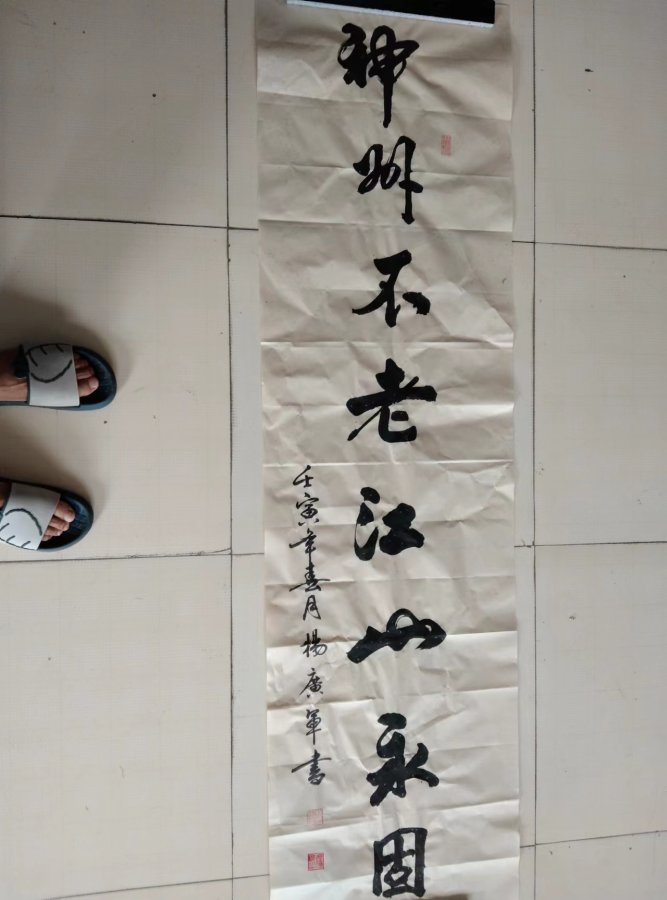 神州不老江山永固
壬寅年春月楊廣軍書